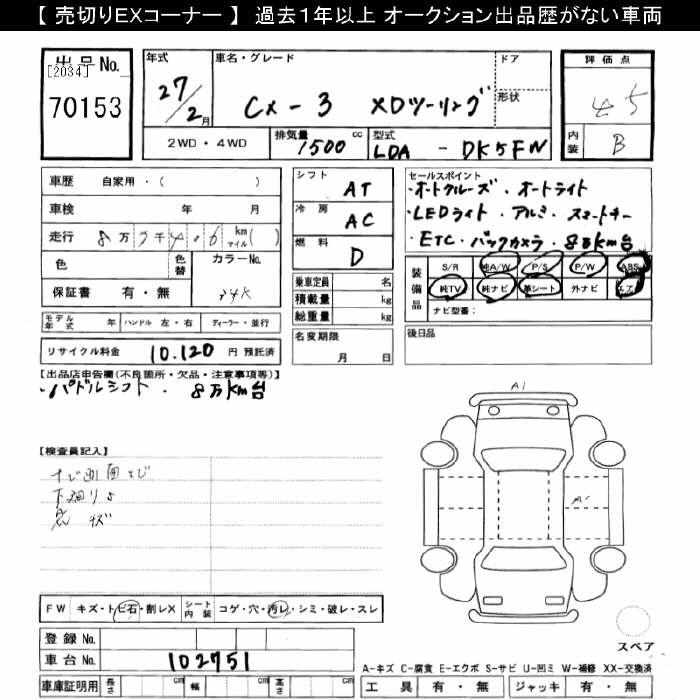 【 売切りEXコーナー 】 過去1年以上 オークション出品歴がない車両
出品No.
[2034]
70153
年式
27/2月
車名・グレード
CX-3 XDツーリング
ドア
形状
評価点
4.5
内装
B
2WD・4WD
排気量 1500 cc
型式 LDA - DK5FW
車歴 自家用・( )
車検 年 月
走行 8万 7千 4.6 km マイル( )
色
色替
カラーNo.
34K
保証書 有・無
モデル年式 年 ハンドル 左・右 ディーラー・並行
リサイクル料金 10.120 円 預託済
シフト AT
冷房 AC
燃料 D
乗車定員 名
積載量 kg
総重量 kg
名変期限
月 日
セールスポイント
・オートクルーズ・オートライト
・LEDライト・アルミ・スマートキー
・ETC・バックカメラ・8万km台
装備品
S/R 純A/W P/S P/W ABS
純TV 純ナビ 革シート 外ナビ エア
ナビ型番：
後日品
【出品店申告欄(不良箇所・欠品・注意事項等)】
・パドルシフト・8万km台
【検査員記入】
ナビ画面とび
下廻りよ
FW キズ・トビ石・割レX シート内装 コゲ・穴・汚レ・シミ・破レ・スレ
登録 No.
車台 No. 102751
車庫証明用 長さ cm 幅 cm 高さ cm
A1
A1
スペア
A-キズ C-腐食 E-エクボ S-サビ U-凹ミ W-補修 XX-交換済
工具 有・無 ジャッキ 有・無